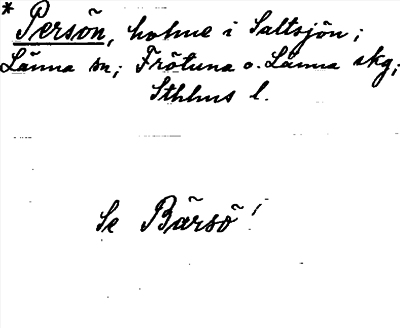 * Persön, holme i Saltsjön;
Länna sn; Frötuna o. Länna skg;
Sthlms l.
Se Bärsö!